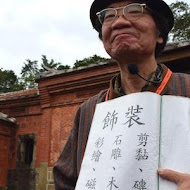 裝飾
剪黏、磚
石雕、木
彩繪、磁